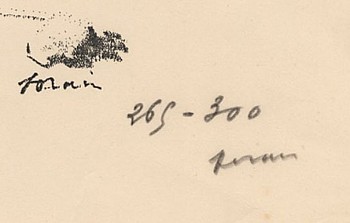 forain
265-300
forain